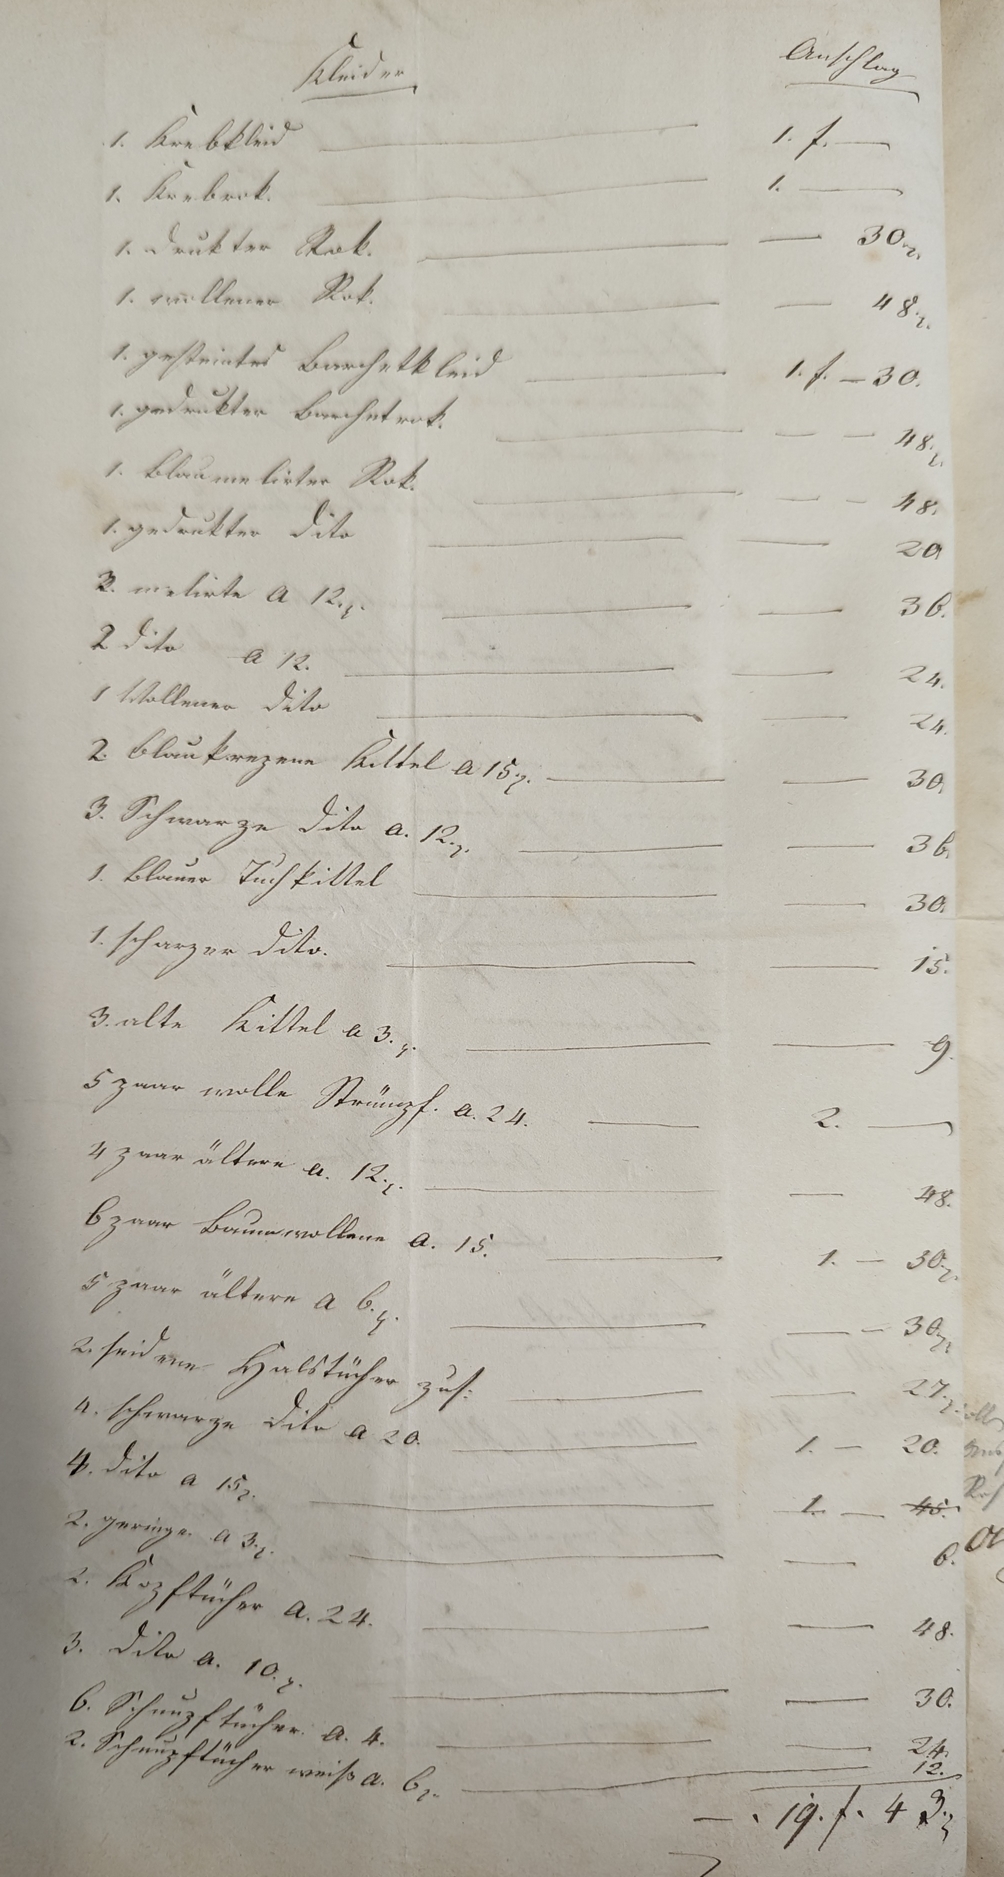 Kleider Anschlag
1. Krebkleid 1. f. —
1. Krebrok. 1. —
1. drukter Rok. — 30 x.
1. wollener Rok. — 48. x.
1. gesteintes Barchetkleid 1. f. — 30.
1. gedrukter Barchetrok. — — 48. x.
1. Blaumelirter Rok. — — 48.
1. gedrukter dito — 20
3. melirte a 12. x. — 36.
2 dito a 12. — 24.
1 Wollener dito — 24.
2. Blau Kittel a 15 x. — 30.
3. Schwarze dito a. 12. x. — 36.
1. Blauer Tuchkittel — 30.
1. scharzer dito. — 15.
3. alte Kittel a 3. x. — 9.
5 paar wolle Strümpf. a. 24. 2. —
4 paar ältere a. 12. x. — 48.
6 paar Baumwollene a. 15. 1. — 30. x.
5 paar ältere a 6. x. — — 30 x.
2. seidene Halstücher zus: — 27. x.
4. schwarze dito a 20. 1. — 20.
4. dito a 15 x. 1. — 45.
2. geringe. a 3. x. — 6.
2. Kopftücher a. 24. — 48.
3. dito a. 10. x. — 30.
6. Schnupftücher. a. 4. — 24.
2. Schnupftücher weiß a. 6 x. 12.
— . 19. f. 43. x